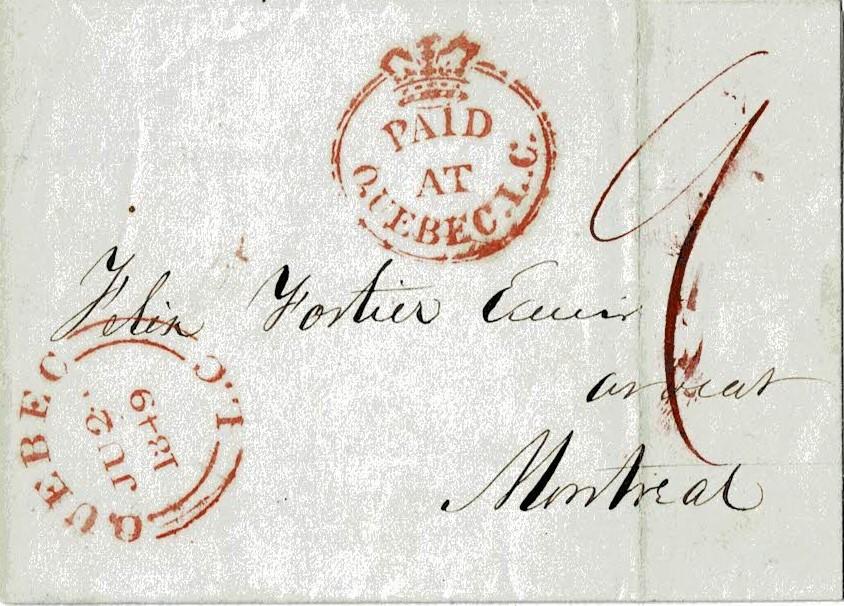 PAID
AT
QUEBEC.L.C.
9
Felix Fortier
avocat
Montreal
QUEBEC L.C.
JU 2
1849